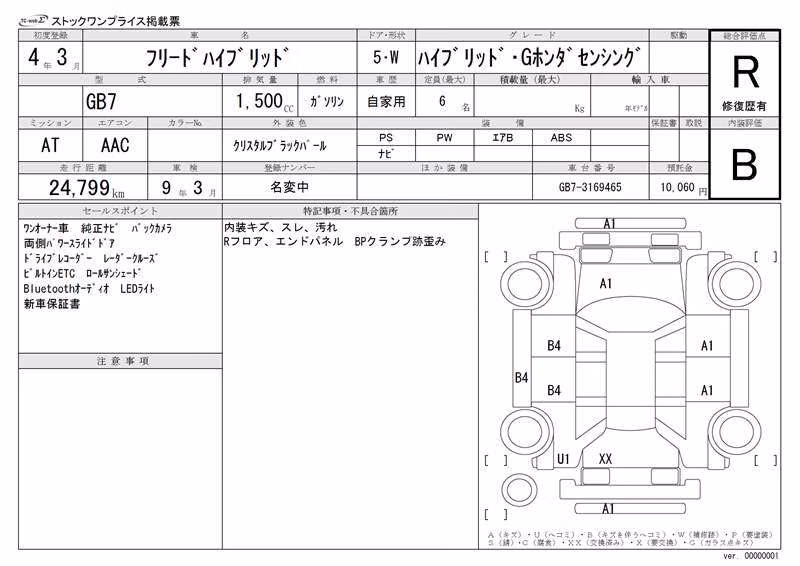 TC-webΣ ストックワンプライス掲載票
初度登録 車名 ドア・形状 グレード 駆動 総合評価点
4年3月 フリードハイブリッド 5・W ハイブリッド・Gホンダセンシング R
修復歴有
型式 排気量 燃料 車歴 定員(最大) 積載量(最大) 輸入車
GB7 1,500CC ガソリン 自家用 6名 Kg 年モデル
ミッション エアコン カラーNo. 外装色 装備 保証書 取説 内装評価
AT AAC クリスタルブラックパール PS PW エアB ABS B
ナビ
走行距離 車検 登録ナンバー ほか装備 車台番号 預託金
24,799km 9年3月 名変中 GB7-3169465 10,060円
セールスポイント
ワンオーナー車 純正ナビ バックカメラ
両側パワースライドドア
ドライブレコーダー レーダークルーズ
ビルトインETC ロールサンシェード
Bluetoothオーディオ LEDライト
新車保証書
注意事項
特記事項・不具合箇所
内装キズ、スレ、汚れ
Rフロア、エンドパネル BPクランプ跡歪み
A1
[ ] [ ]
A1
B4 A1
B4
B4 A1
[ ] U1 XX [ ]
A1
[ ]
A(キズ)・U(ヘコミ)・B(キズを伴うヘコミ)・W(補修跡)・P(要塗装)
S(錆)・C(腐食)・XX(交換済み)・X(要交換)・G(ガラス点キズ)
ver. 00000001